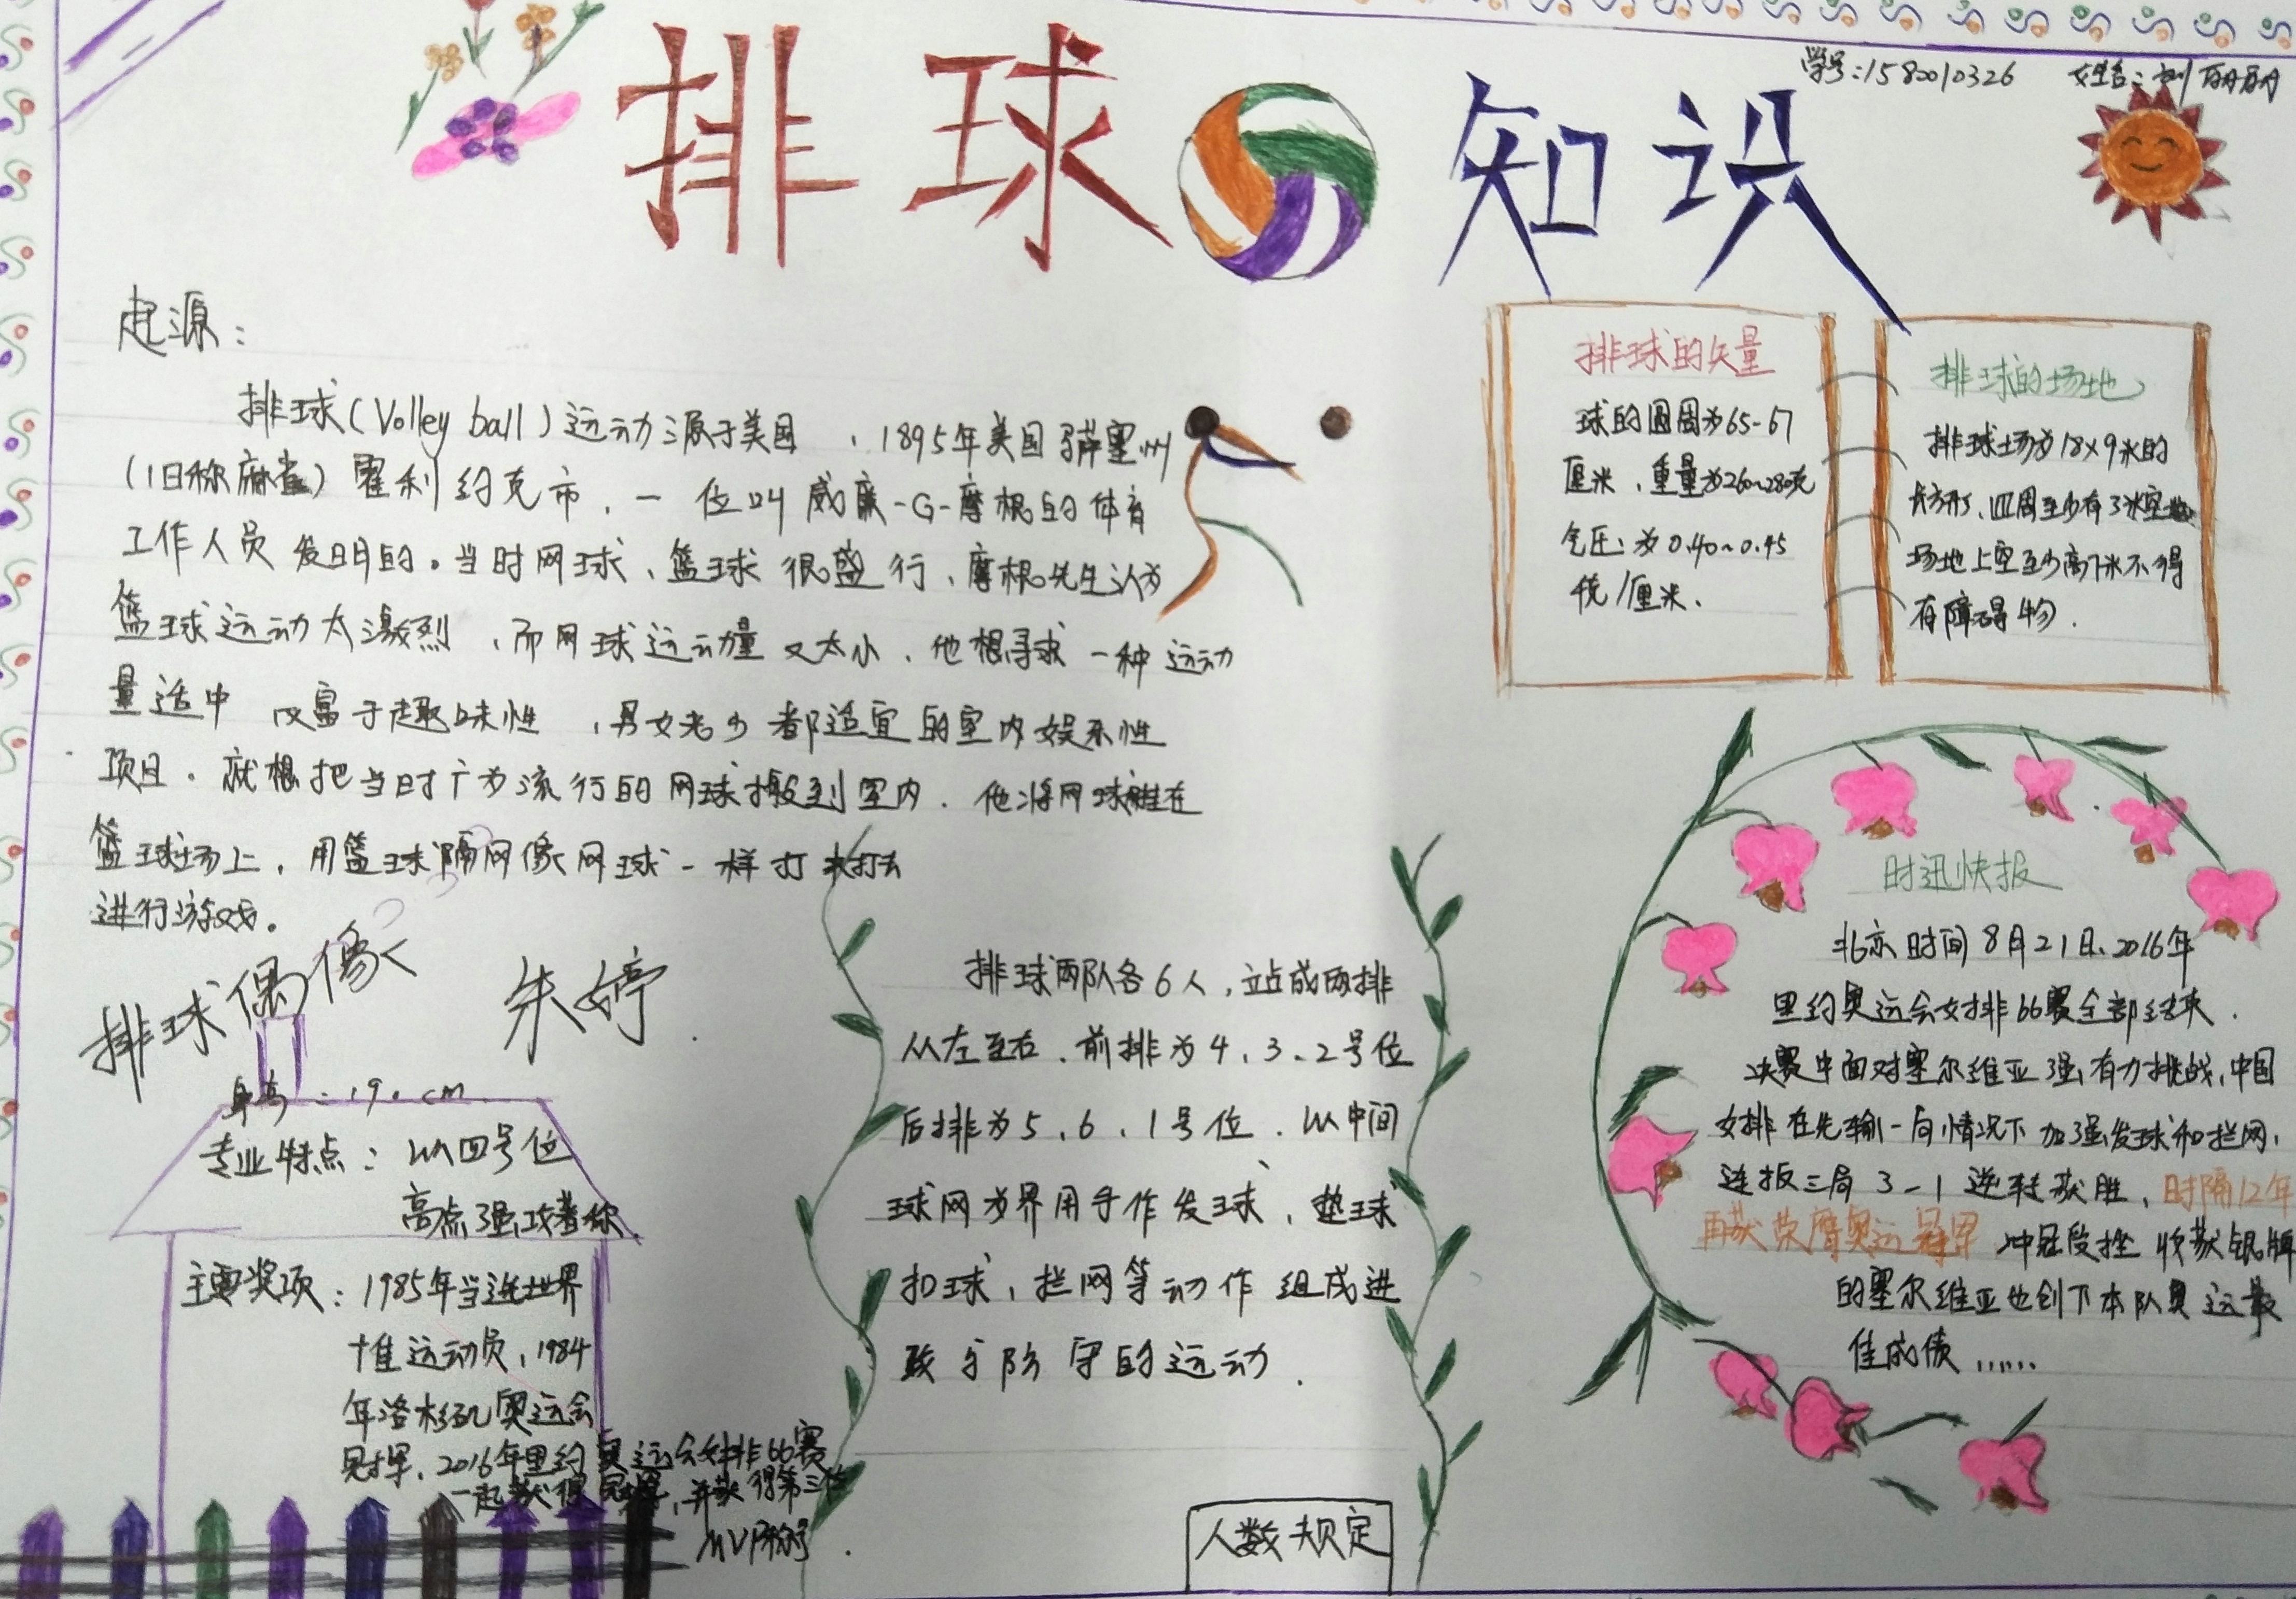 排球知识
学号:1580010326 姓名:刘丽丽
起源:
排球(Volley ball)运动源于美国,1895年美国
(旧称麻雀)霍利约克市,一位叫威廉-G-摩根的体育
工作人员发明的。当时网球、篮球很盛行,摩根先生认为
篮球运动太激烈,而网球运动量又太小,他想寻求一种运动
量适中 又富于趣味性,男女老少都适宜的室内娱乐性
项目。就想把当时广为流行的网球搬到室内.他将网球 在
篮球场上,用篮球隔网像网球一样打来打去
进行游戏。
排球的矢量
球的圆周为65-67
厘米,重量为260~280克
气压:为0.40~0.45
/厘米.
排球的场地
排球场为18×9米的
长方形,四周至少有3米空地
场地上空至少高7米不得
有障碍物.
排球偶像 朱婷
身高:190cm
专业特点:以四号位
高点强攻著称.
主要奖项:1985年当选世界
十佳运动员,1984
年洛杉矶奥运会
冠军、2016年里约奥运会女排66赛
一起获得冠军,并获得第三位
MVP称号.
排球两队各6人,站成两排
从左至右.前排为4、3、2号位
后排为5、6、1号位.以中间
球网为界用手作发球、垫球
扣球,拦网等动作组成进
攻与防守的运动.
人数规定
时迅快报
北京时间8月21日、2016年
里约奥运会女排66赛全部结束.
决赛中面对塞尔维亚强有力挑战,中国
女排在先输一局情况下加强发球和拦网,
连扳三局3-1逆转获胜,时隔12年
再获荣膺奥运冠军 冲冠受挫 收获银牌
的塞尔维亚也创下本队奥运最
佳成绩……